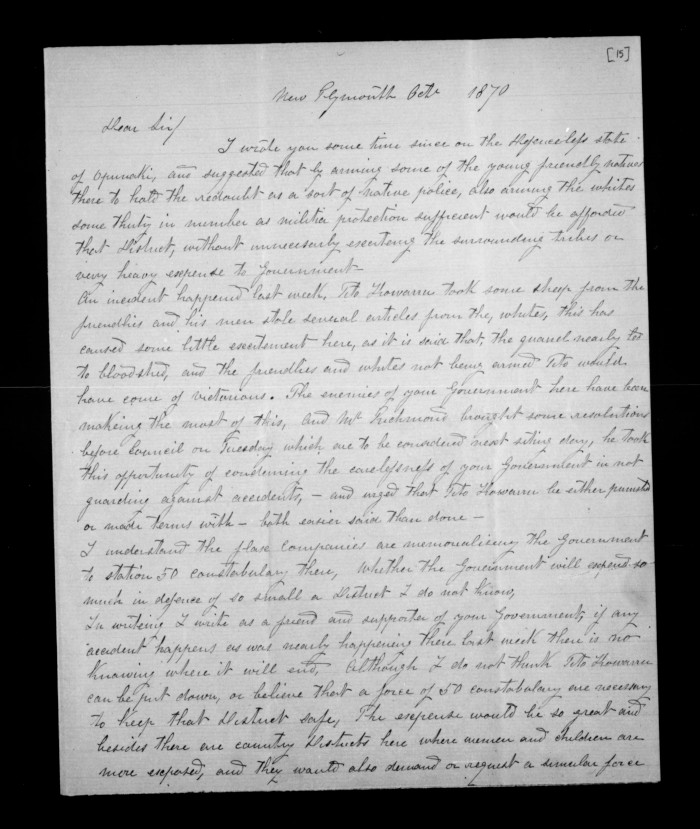 [15]
New Plymouth Octr 1870
Dear Sir/
I wrote you some time since on the defenceless state
of Opunaki, and suggested that by arming some of the young friendly natives
there to hold the redoubt as a sort of native police, also arming the whites
some thirty in number as militia protection sufficient would be afforded
that District, without unnecessarly exciteing the surrounding tribes or
very heavy expense to Government
An incident happened last week, Tito Howarru took some sheep from the
friendlies and his men stole several articles from the, whites, this has
caused some little excitement here, as it is said that, the quarrel nearly led
to bloodshed, and the friendlies and whites not being armed Tito would
have come of victorious. The enemies of your Government here have been
making the most of this, and Mr Richmond brought some resolutions
before Council on Tuesday which are to be considered next siting day, he took
this opportunity of condemning the carelessness of your Government in not
guarding against accidents, – and urged that Tito Howarru be either punished
or made terms with – both easier said than done –
I understand the flax Companies are memorialiceing the Government
to station 50 constabulary there, Whether the Government will expend so
much in defence of so small a District I do not know,
In writing I write as a friend and supporter of your Government, if any
accident happens as was nearly happening there last week there is no
knowing where it will end, Although I do not think Tito Howarru
can be put down, or believe that a force of 50 constabulary are necessary
to keep that District safe, The expense would be so great and
besides there are country districts here where women and children are
more exposed, and they would also demand or request a simular force